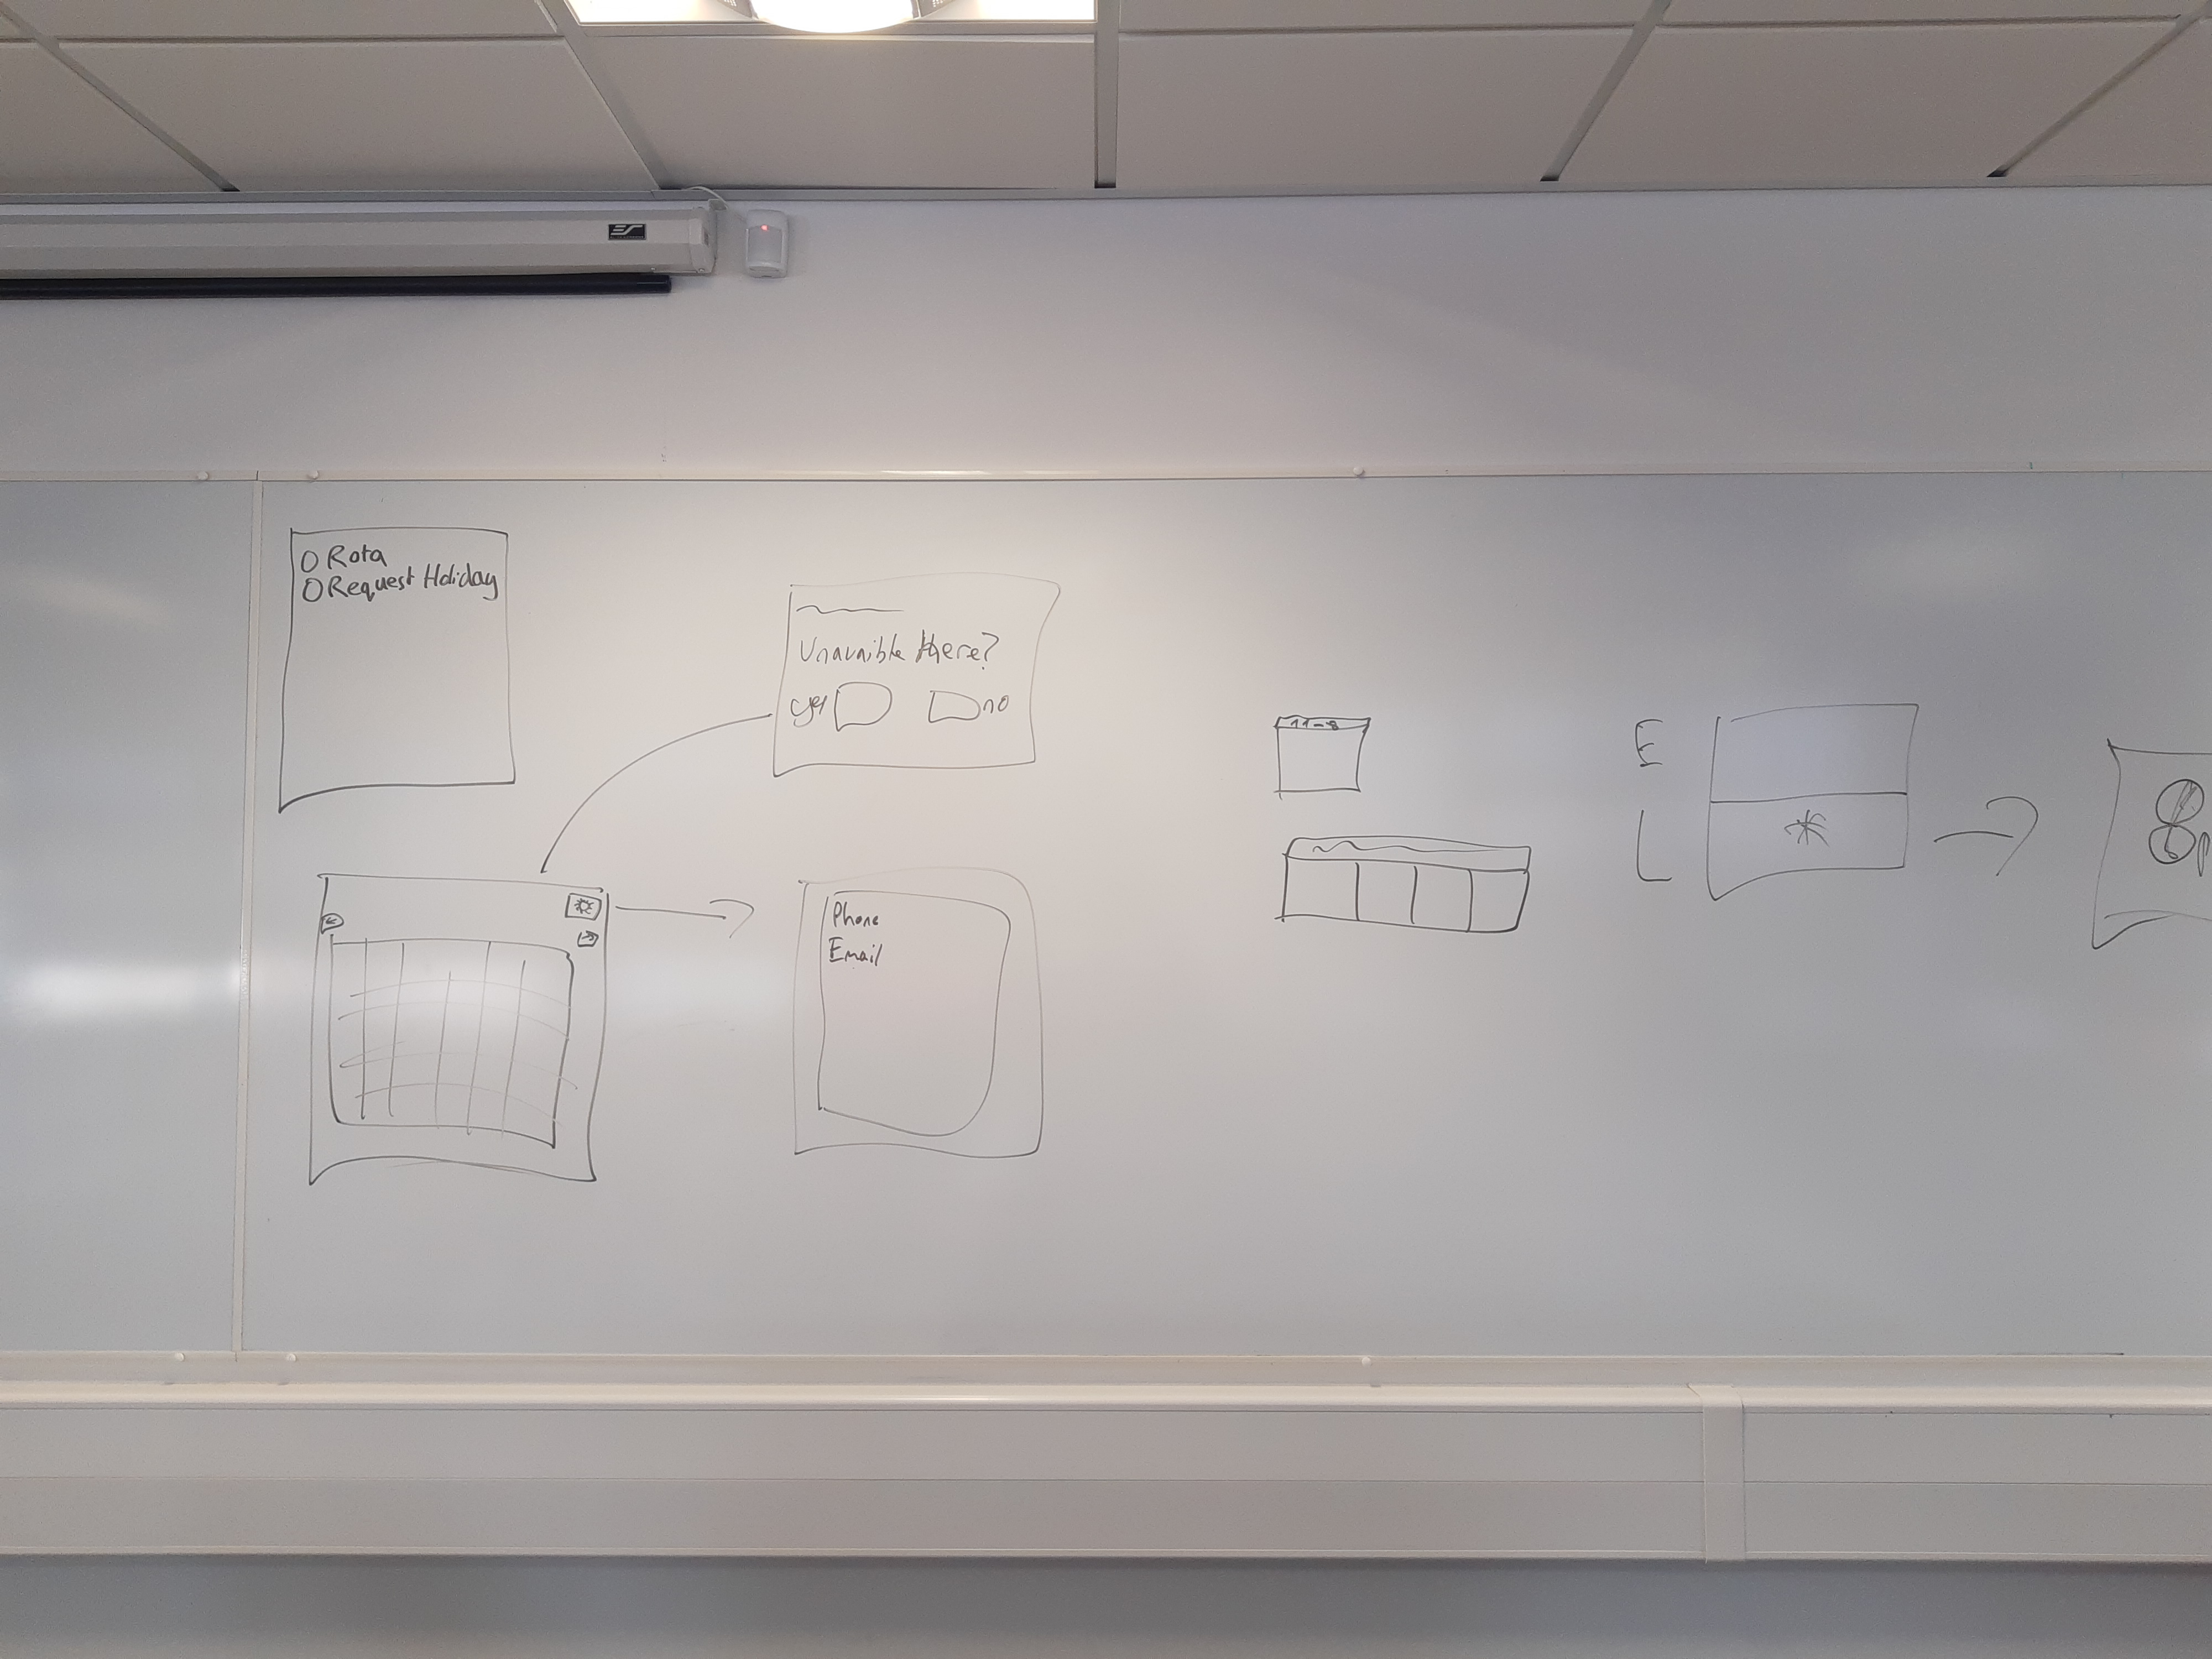 O Rota
O Request Holiday
Unavaible there?
yes no
Phone
Email
11-8
E
L